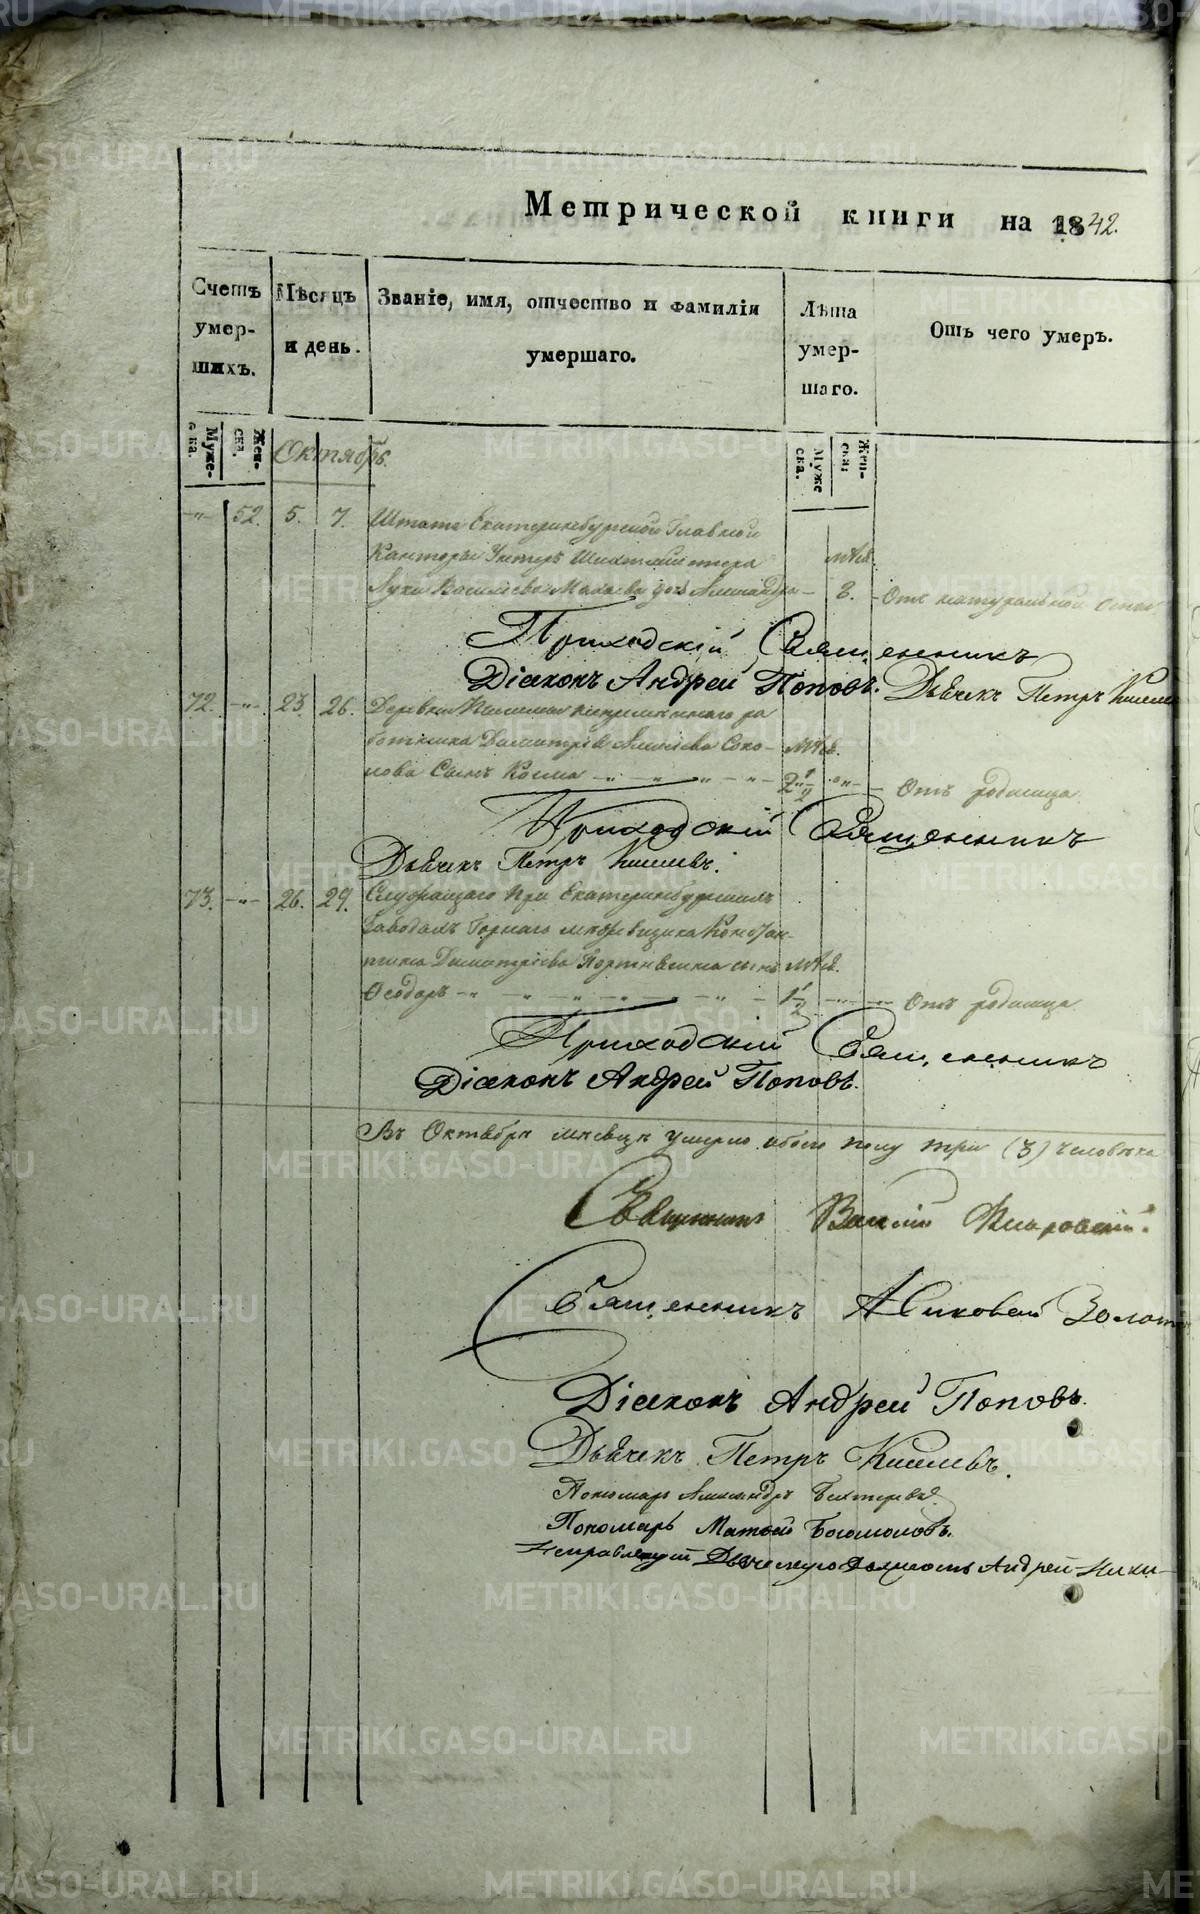 Метрической книги на 1842.
Счетъ умер-шихъ.
Мѣсяцъ и день.
Званіе, имя, отчество и фамилія умершаго.
Лѣта умер-шаго.
Отъ чего умеръ.
Муже-ска.
Жен-ска.
Октябрь.
Муже ска.
Жен-ска
-"- 52. 5. 7. Штата Екатеринбургской Главной
Канторы Унтеръ Шихтмейстера мѣс.
Луки Васильева дочь Александра - 8. - Отъ натуральной оспы
Приходскій Священникъ
Діаконъ Андрей Поповъ. Дьячекъ Петръ Киселевъ
72. -"- 23. 26. Деревни непремѣннаго ра
ботника Димитрія Алексѣева Соко- мѣс.
лова Сынъ Козма -"- 2 1/2 -"- Отъ родимца
Приходскій Священникъ
Дьячекъ Петръ Киселевъ.
73. -"- 26. 29. Служащаго при Екатеринбургскихъ
Заводахъ Горнаго Констан-
тина Димитріева сынъ мѣс.
Ѳеодоръ -"- 1 1/2 -"- Отъ родимца
Приходскій Священникъ
Діаконъ Андрей Поповъ.
Въ Октябрѣ мѣсяцѣ умерло обоего полу три (3) человѣка
Священникъ Василій
Священникъ
Діаконъ Андрей Поповъ.
Дьячекъ Петръ Киселевъ.
Пономарь Александръ
Пономарь Матвѣй Богомоловъ.
Исправляющій Дьяческую должность Андрей Ники-
METRIKI.GASO-URAL.RU